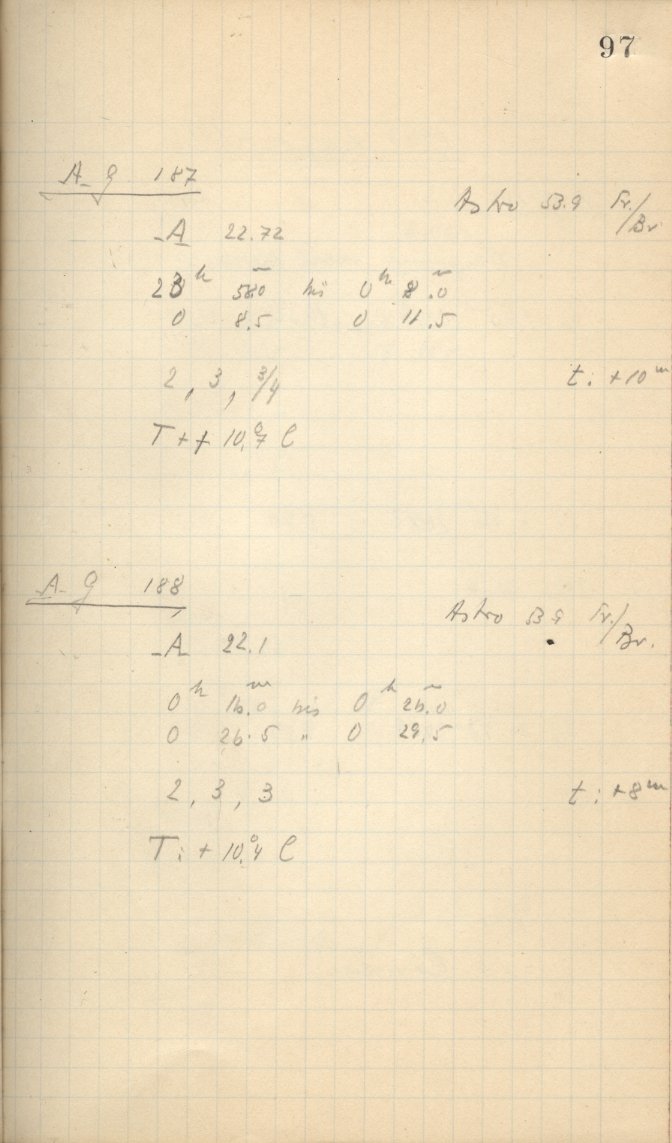 97
A G 187
Astro 53.9 Fr./Br
A 22.72
23h 58m0 bis 0h 8m.0
0 8.5 0 11.5
2, 3, 3/4
t: +10m
T + + 10°,7 C
A G 188
Astro 53.9 Fr./Br.
A 22.1
0h 16m.0 bis 0h 26m.0
0 26.5 " 0 29.5
2, 3, 3
t: +8m
T: + 10°,4 C